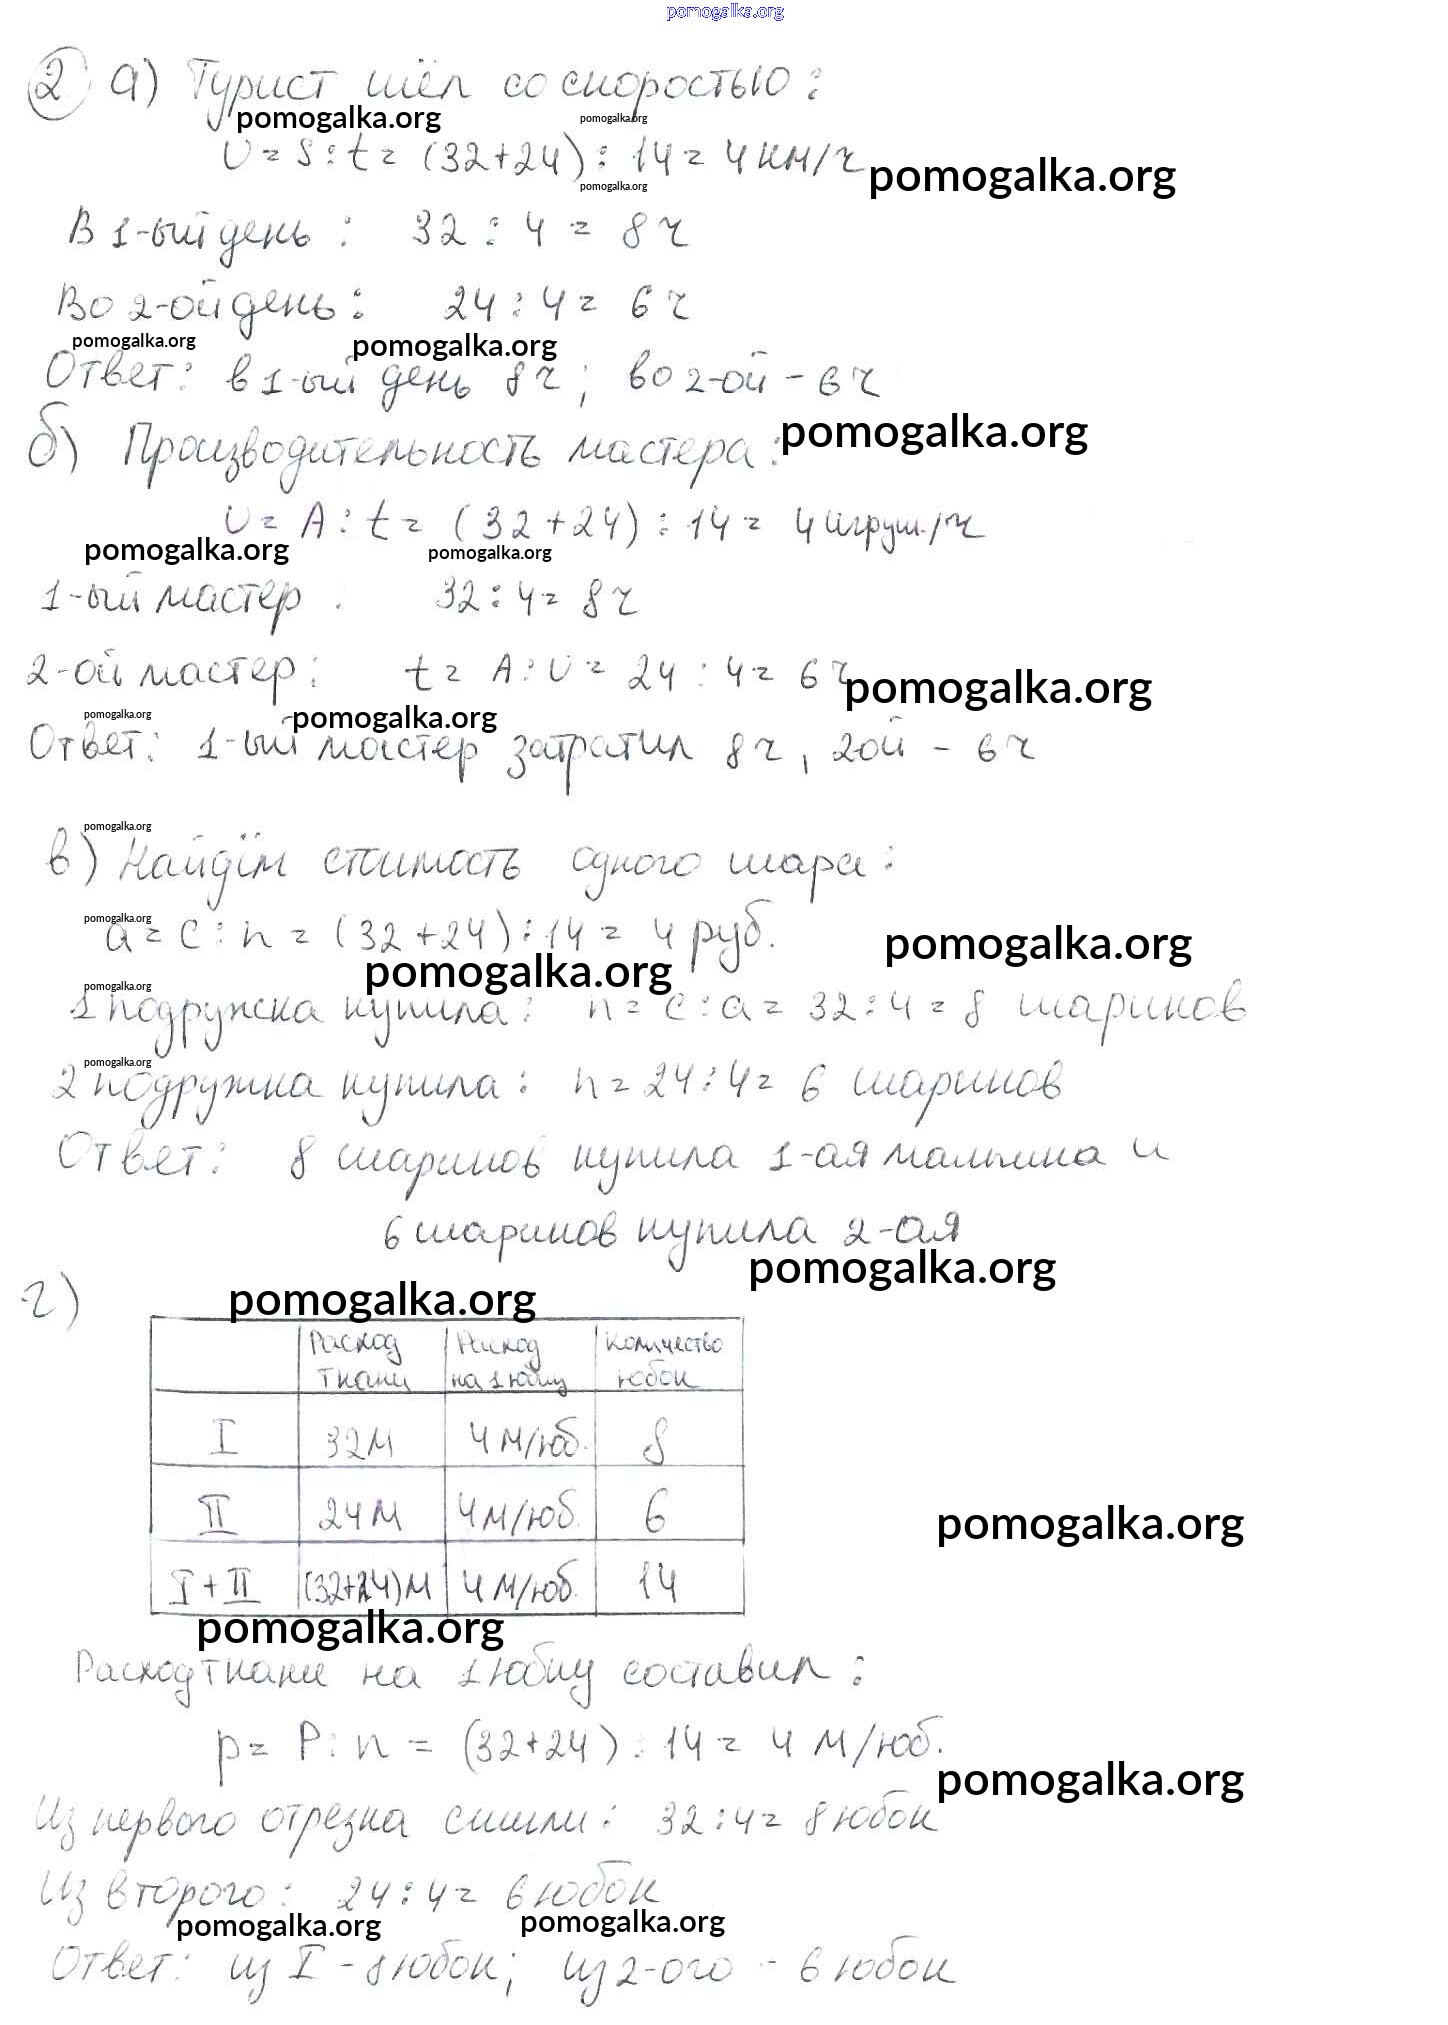 pomogalka.org
2 а) Турист шёл со скоростью:
pomogalka.org pomogalka.org
v = S : t = (32+24) : 14 = 4 км/ч
pomogalka.org
pomogalka.org
В 1-ый день : 32 : 4 = 8 ч
Во 2-ой день : 24 : 4 = 6 ч
pomogalka.org pomogalka.org
Ответ: в 1-ый день 8 ч ; во 2-ой - 6 ч
pomogalka.org
б) Производительность мастера :
v = A : t = (32+24) : 14 = 4 игруш./ч
pomogalka.org pomogalka.org
1-ый мастер : 32 : 4 = 8 ч
2-ой мастер : t = A : v = 24 : 4 = 6 ч
pomogalka.org
pomogalka.org pomogalka.org
Ответ: 1-ый мастер затратил 8 ч, 2ой - 6 ч
pomogalka.org
в) Найдём стоимость одного шара :
pomogalka.org
a = C : n = (32+24) : 14 = 4 руб.
pomogalka.org
pomogalka.org
pomogalka.org
1 подружка купила : n = C : a = 32 : 4 = 8 шариков
pomogalka.org
2 подружка купила : n = 24 : 4 = 6 шариков
Ответ: 8 шариков купила 1-ая и
6 шариков купила 2-ая
pomogalka.org
г)
pomogalka.org
Расход ткани Расход на 1 юбку Количество юбок
I 32м 4 м/юб. 8
II 24 м 4 м/юб. 6
pomogalka.org
I + II (32+24) м 4 м/юб. 14
pomogalka.org
Расход ткани на 1 юбку составил :
p = P : n = (32+24) : 14 = 4 м/юб.
pomogalka.org
Из первого отрезка сшили : 32 : 4 = 8 юбок
Из второго : 24 : 4 = 6 юбок
pomogalka.org pomogalka.org
Ответ: из I - 8 юбок; из 2-ого - 6 юбок